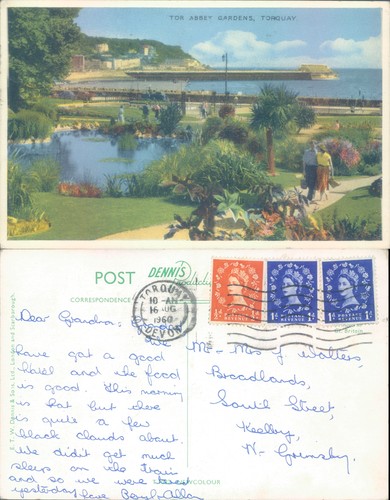 TOR ABBEY GARDENS, TORQUAY
POST
DENNIS
Productions
CORRESPONDENCE
TORQUAY
10-AM
16 AUG
1960
DEVON
POSTAGE
REVENUE
½d
1d
1d
Dear Grandma,
We
have got a good
hotel and the food
is good. This morning
is hot but there
is quite a few
black clouds about.
We didn't get much
sleep on the train
and so we were tired
yesterday. Love Beryl-Allan
Mr - Mrs J Walters,
Broadlands,
South Street,
Keelby,
Nr Grimsby.
E. T. W. Dennis & Sons, Ltd., London and Scarborough.
COLOUR